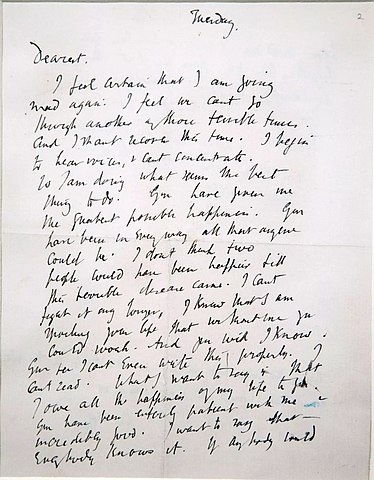 Tuesday.
2
Dearest.
I feel certain that I am going
mad again. I feel we cant go
through another of those terrible times.
And I shant recover this time. I begin
to hear voices, & cant concentrate.
So I am doing what seems the best
thing to do. You have given me
the greatest possible happiness. You
have been in every way all that anyone
could be. I dont think two
people could have been happier till
this terrible disease came. I cant
fight it any longer, I know that I am
spoiling your life that without me you
could work. And you will I know.
You see I cant even write this properly. I
cant read. What I want to say is that
I owe all the happiness of my life to you.
You have been entirely patient with me &
incredibly good. I want to say that –
everybody knows it. If anybody could